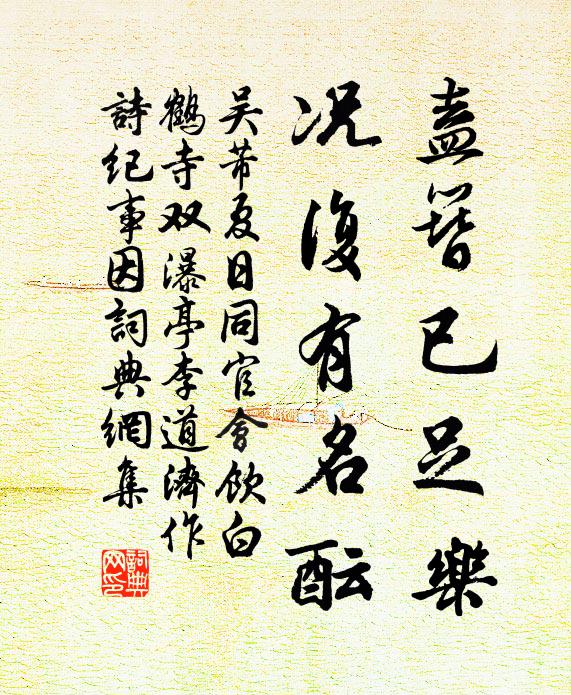 盍簪已足樂
况復有名酝
吴芾夏日同官會飲白
鶴寺双瀑亭李道濟作
詩紀事因詞典網集
詞典
网印